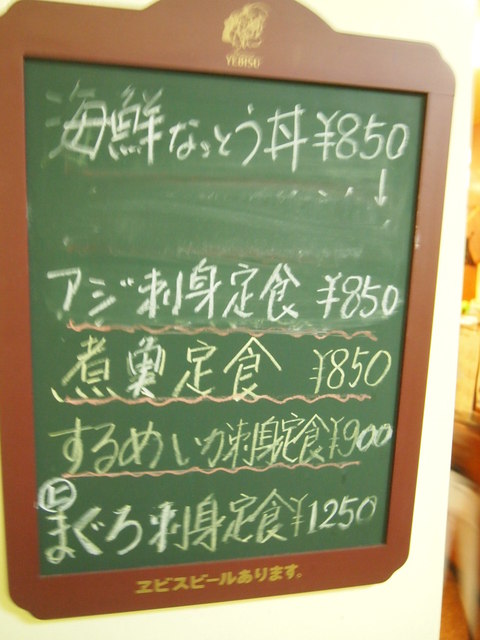 YEBISU
海鮮なっとう丼 ¥850
↓
アジ刺身定食 ¥850
煮魚定食 ¥850
するめいか刺身定食 ¥900
まぐろ刺身定食 ¥1250
ヱビスビールあります。